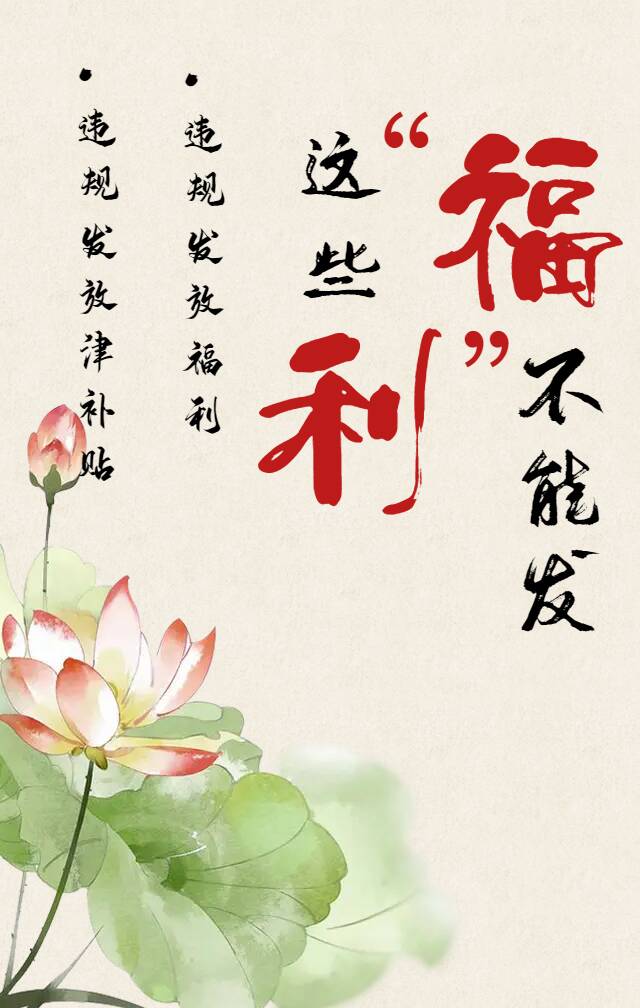 这些“福利”不能发
•违规发放福利
•违规发放津补贴